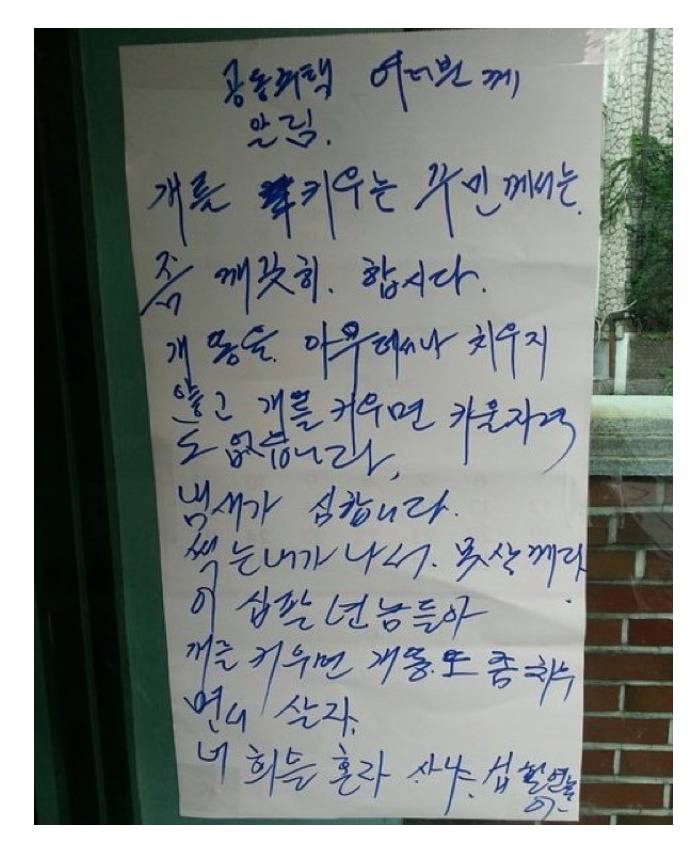 공동주택 여러분께
알림.
개를 키우는 주민께서는.
좀 깨끗히. 합시다.
개똥을. 아무데서나 치우지
않고 개를 키우면 키울자격
도 없습니다.
냄새가 심합니다.
썩는내가 나서. 못살께다.
이 십팔년놈들아
개를 키우면 개똥.도 좀 치우
면서 살자.
너희들 혼자 사냐. 십팔년놈
아-